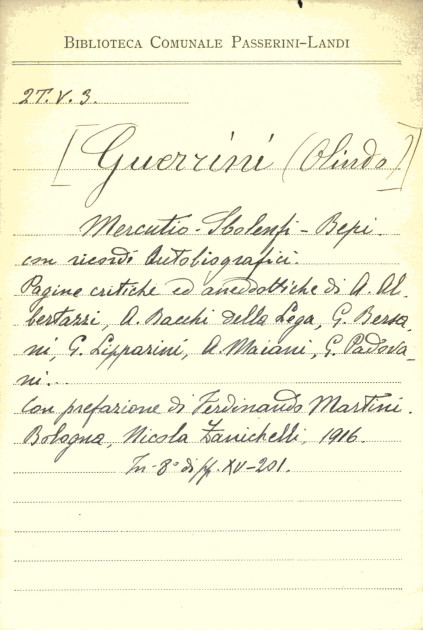 BIBLIOTECA COMUNALE PASSERINI-LANDI
2T.V.3.
[Guerrini (Olindo)]
Mercutio - Sbolenfi - Bepi.
con ricordi Autobiografici.
Pagine critiche ed aneddottiche di A. Al-
bertazzi, A. Bacchi della Lega, G. Bersa-
ni, G. Lipparini, A. Maiani, G. Padova-
ni...
Con prefazione di Ferdinando Martini.
Bologna, Nicola Zanichelli, 1916.
In-8° di pp. XV-201.